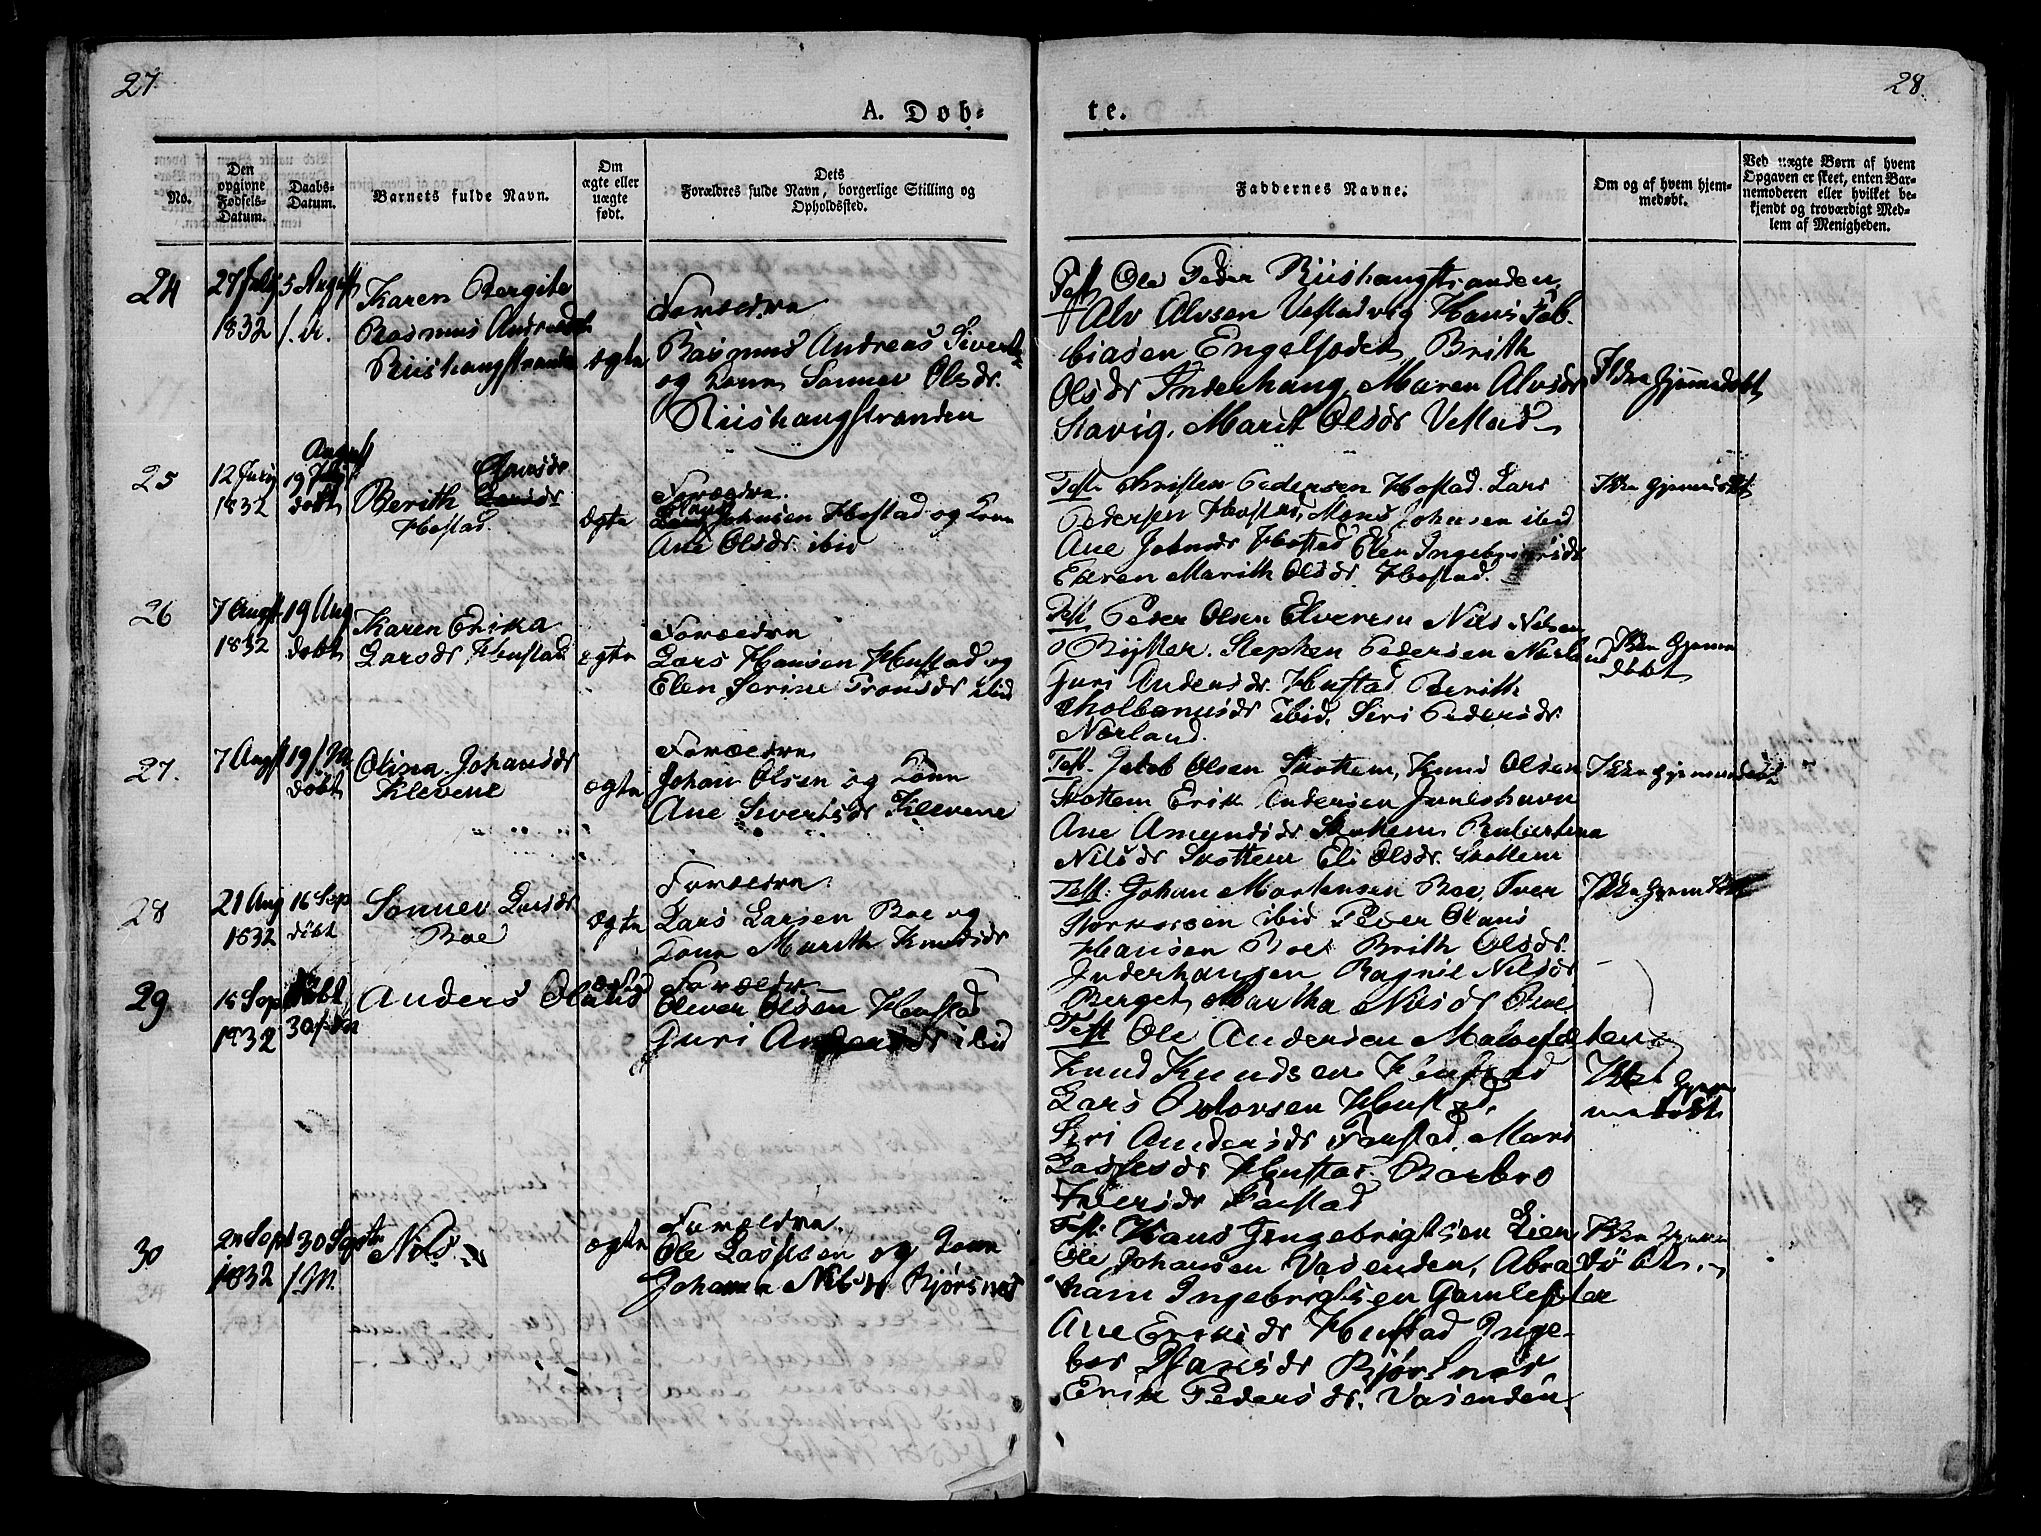 27.
28.
A. Døb-
te.
No.
Den opgivne Fødsels-Datum.
Daabs-Datum.
Barnets fulde Navn.
Om ægte eller uægte født.
Dets Forældres fulde Navn, borgerlige Stilling og Opholdssted.
Faddernes Navne.
Om og af hvem hjem-medøbt.
Ved uægte Børn af hvem Opgaven er skeet, enten Bar-nemoderen eller hvilket be-kjendt og troværdigt Med-lem af Menigheden.
24
27 July
1832
5 August
Karen Bergite
Rasmus
Riishaugstranden
ægte
Forældre
Rasmus Andreas Siverts
og Kone Sønnev Olsdr.
Riishaugstranden
Test. Ole Peder Riishaugstranden
Alv Alvsen Vestadvig Hans Tob-
biasen Brith
Olsdr Inderhaug, Maren Alvsdr
Stavig, Marit Olsdr Vestad
Ikke Hjemedøbt
25
12 July
1832
August
19 July
døbt
Berith
Hostad.
ægte
Forældre.
Johnsen Hostad og Kone
Ane Olsdr. ibid
Test. Christen Pedersen Hostad. Lars
Pedersen Hostad, Mons Johnsen ibid
Ane Johnsdr Hostad Elen Ingebrigtsdr
Marith Olsdr Hostad.
Ikke Hjemedøbt
26
7 August
1832
19 Aug
døbt
Karen Erika
Larsdr Hustad
ægte
Forældre
Lars Hansen Hustad og
Elen Serine Tronsdr ibid
Test Peder Olsen Elveren Nils Nilsen
Stephen Pedersen Nerland
Guri Andersdr. Hustad Berith
ibid, Siri Pedersdr.
Nerland.
Ikke Hjemme
døbt
27.
7 August
19
døbt
Olina Johansdr
Klevene
ægte
Forældre
Johan Olsen og Kone
Ane Sivertsdr Klevene
Test. Jakob Olsen Skottem, Knud Olsen
Skottem Erik Andersen
Ane Amundsdr Skottem
Nilsdr Skottem Eli Olsdr. Skottem
Ikke Hjemmedøbt
28
21 Aug
1832
16 Sep
døbt
Sønnev Larsdr
Boe
ægte
Forældre.
Lars Larsen Boe og
Kone Marith Knudsdr
Test. Johan Mortensen Boe, Iver
ibid Peder Olaus
Hansen Boe Brith Olsdr.
Inderhaugen Ragnil Nilsdr
Berget Martha Nilsdr Boe
Ikke Hjemdøbt
29
1832
døbt
30
Anders Olaus
ægte
Forældre
Oliver Olsen Hustad
Guri Andersdr ibid
Test Ole Andersen Malesæteren
Knud Knudsen Hustad
Lars Hustad.
Siri Andersdr Farstad Mari
Lassesdr Hustad, Barbro
Iversdr Farstad
Ikke Hjem
medøbt
30
1832
30 Septr
Nils
ægte
Forældre.
Ole Lassesen og Kone
Johanna Nilsdr Bjørsnes
Test. Hans Ingebrigtsen Lien
Ole Johansen Vasenden, Abra-
ham Ingebrigtsen
Ane Eriksdr Hustad Inge-
bor Hansdr Bjørsnes
Erik Pedersdr. Vasenden.
Ikke Hjemme
døbt.